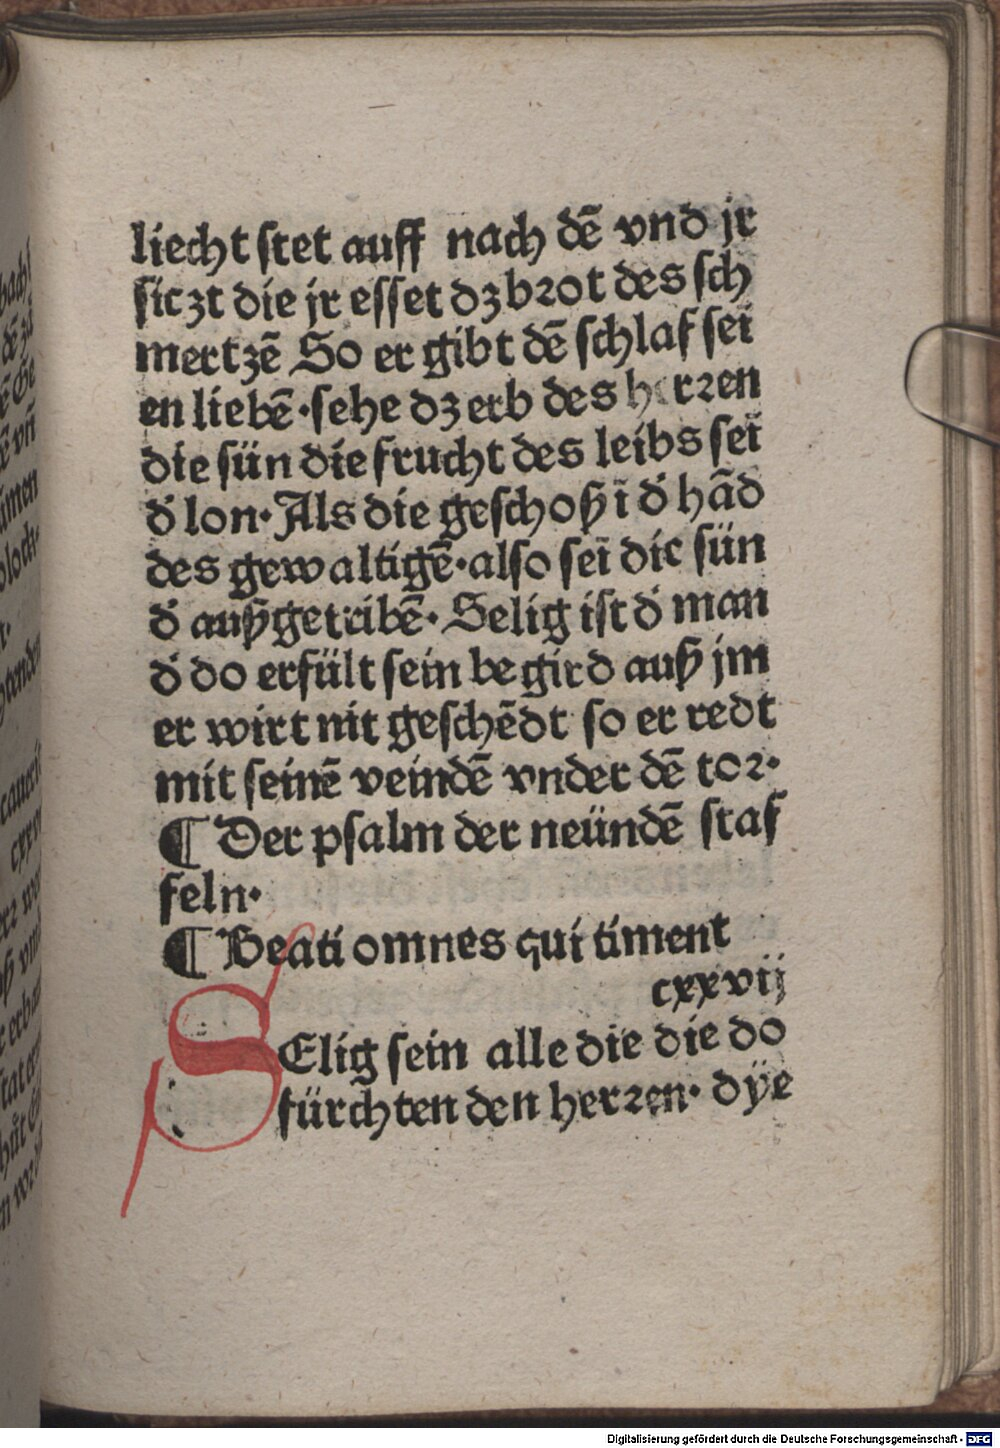 liecht stet auff nach dē vnd jr
siczt die jr esset dz brot des sch
mertzē So er gibt dē schlaf sei
en liebē · sehe dz erb des herren
die sün die frucht des leibs sei
d' lon · Als die geschoß ī d' hād
des gewaltigē · also sei die sün
d' außgetribē · Selig ist d' man
d' do erfült sein begird auß jm
er wirt nit geschēdt so er redt
mit seinē veindē vnder dē tor ·
¶ Der psalm der neündē staf
feln ·
¶ Beati omnes qui timent
cxxvij
SElig sein alle die die do
fürchten den herren · dÿe
Digitalisierung gefördert durch die Deutsche Forschungsgemeinschaft - DFG